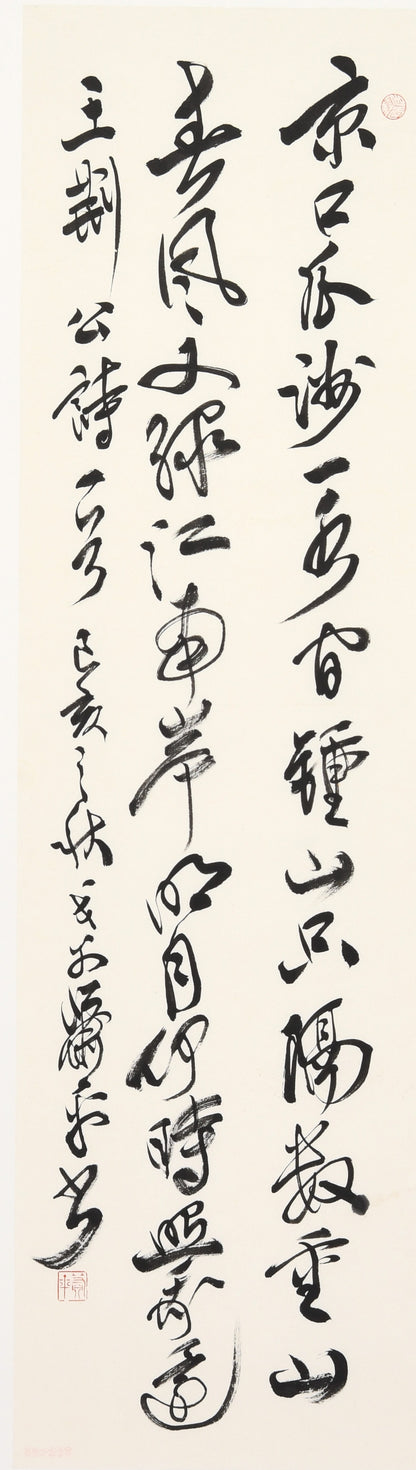 京口瓜洲一水间鍾山只隔数重山
春风又绿江南岸明月何時照我還
王荆公詩一首己亥之秋